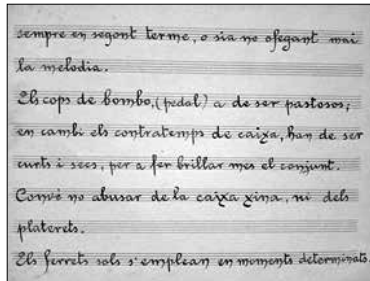 sempre en segont terme, o sia no ofegant mai
la melodia.
Els cops de bombo, (pedal) a de ser pastosos;
en cambi els contratemps de caixa, han de ser
curts i secs, per a fer brillar mes el conjunt.
Convé no abusar de la caixa xina, ni dels
platerets.
Els ferrets sols s'emplean en moments determinats.